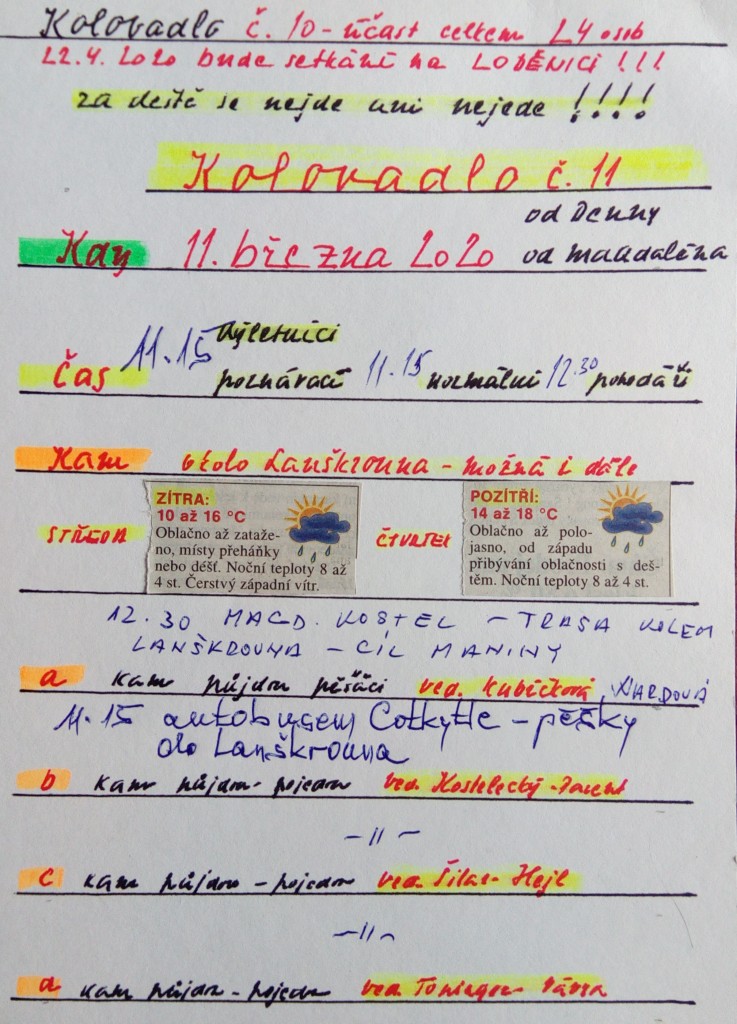 Kolovadlo č. 10 - účast celkem 24 osob
22.4. 2020 bude setkání na LODĚNICI !!!
za deště se nejde ani nejede !!!!
Kolovadlo č. 11
od Denny
Kdy 11. března 2020 od Magdaléna
Čas 11.15 výletníci
poznávací 11.15 normální 12.30 pohodáři
Kam okolo Lanškrouna - možná i dále
STŘEDA
ZÍTRA:
10 až 16 °C
Oblačno až zataže-
no, místy přeháňky
nebo déšť. Noční teploty 8 až
4 st. Čerstvý západní vítr.
ČTVRTEK
POZÍTŘÍ:
14 až 18 °C
Oblačno až polo-
jasno, od západu
přibývání oblačnosti s deš-
těm. Noční teploty 8 až 4 st.
12.30 MAGD. KOSTEL - TRASA KOLEM
LANŠKROUNA - CÍL MANINY
a kam půjdou pěšáci ved. Kubíčková,
11.15 autobusem Cotkytle - pěšky
do Lanškrouna
b kam půjdou - pojedou ved. Kostelecký -
- 11 -
c kam půjdou - pojedou ved. Šilar - Hejl
- 11 -
d kam půjdou - pojedou ved.